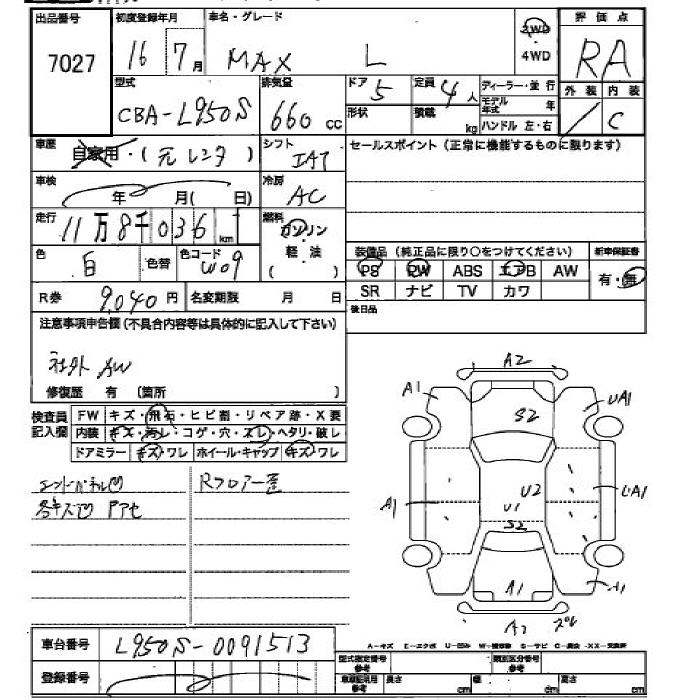 出品番号 初度登録年月 車名・グレード 2WD 評価点
7027 16 7月 MAX L ・4WD RA
型式 排気量 ドア 定員 ディーラー・並行 外装 内装
CBA-L950S 660cc 5 4人 モデル年式 年 / C
形状 積載 kg ハンドル 左・右
車歴 自家用・(元レンタ) シフト IAT セールスポイント(正常に機能するものに限ります)
車検 年 月(日) 冷房 AC
走行 11万8千036km 燃料 ガソリン・軽油( )
装備品(純正品に限り○をつけてください) 新車保証書
色 白 色替 色コード W09 PS PW ABS エアB AW 有・無
R券 9,040円 名変期限 月 日 SR ナビ TV カワ
後日品
注意事項申告欄(不具合内容等は具体的に記入して下さい)
社外AW
修復歴 有(箇所 )
検査員記入欄 FW キズ・飛石・ヒビ割・リペア跡・X要
内装 キズ・汚レ・コゲ・穴・スレ・ヘタリ・破レ
ドアミラー キズ・ワレ ホイール・キャップ キズ・ワレ
エンドパネル凹 Rフロアー歪
各キズ凹 Pアセ
A2
A1 UA1
S2
U2
A1 U1 UA1
S2
A1 A1
A2
車台番号 L950S-0091513
登録番号
A-キズ E-エクボ U-凹ミ W-補修跡 S-サビ C-腐食 XX-交換済
型式指定番号 参考 類別区分番号 参考
車庫証明用 参考 長さ cm 幅 cm 高さ cm